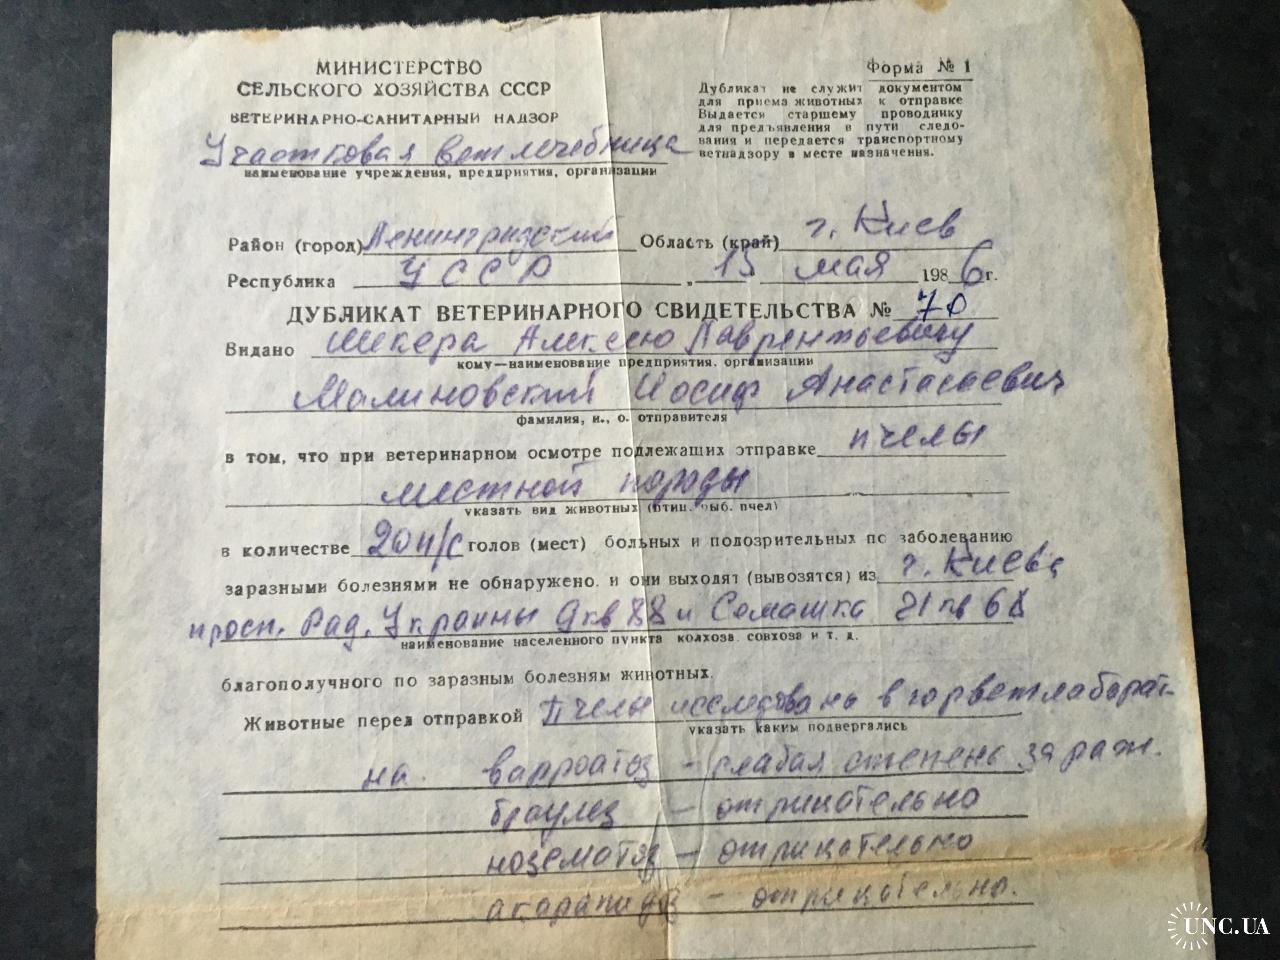 МИНИСТЕРСТВО
СЕЛЬСКОГО ХОЗЯЙСТВА СССР
ВЕТЕРИНАРНО-САНИТАРНЫЙ НАДЗОР
Участковая ветлечебница
наименование учреждения, предприятия, организации
Форма № 1
Дубликат не служит документом
для приема животных к отправке
Выдается старшему проводнику
для предъявления в пути следо-
вания и передается транспортному
ветнадзору в месте назначения.
Район (город) Ленинградский Область (край) г. Киев
Республика УССР „ 15 мая 1986г.
ДУБЛИКАТ ВЕТЕРИНАРНОГО СВИДЕТЕЛЬСТВА № 70
Видано Шкера Алексею Лаврентьевичу
кому—наименование предприятия, организации
Малиновский Иосиф Анастасаевич
фамилия, и., о. отправителя
в том, что при ветеринарном осмотре подлежащих отправке пчелы
местной породы
указать вид животных (птиц, рыб, пчел)
в количестве 20 п/с голов (мест) больных и подозрительных по заболеванию
заразными болезнями не обнаружено, и они выходят (вывозятся) из г. Киева
просп. Рад. Украины 9 кв 88 и Семашка 21 кв 68
наименование населенного пункта колхоза, совхоза и т. д.
благополучного по заразным болезням животных.
Животные перед отправкой Пчелы исследованы в горветлаборат-
указать каким подвергались
на варроатоз - слабая степень зараж.
браулез - отрицательно
нозематоз - отрицательно
акарапидоз - отрицательно.
UNC.UA